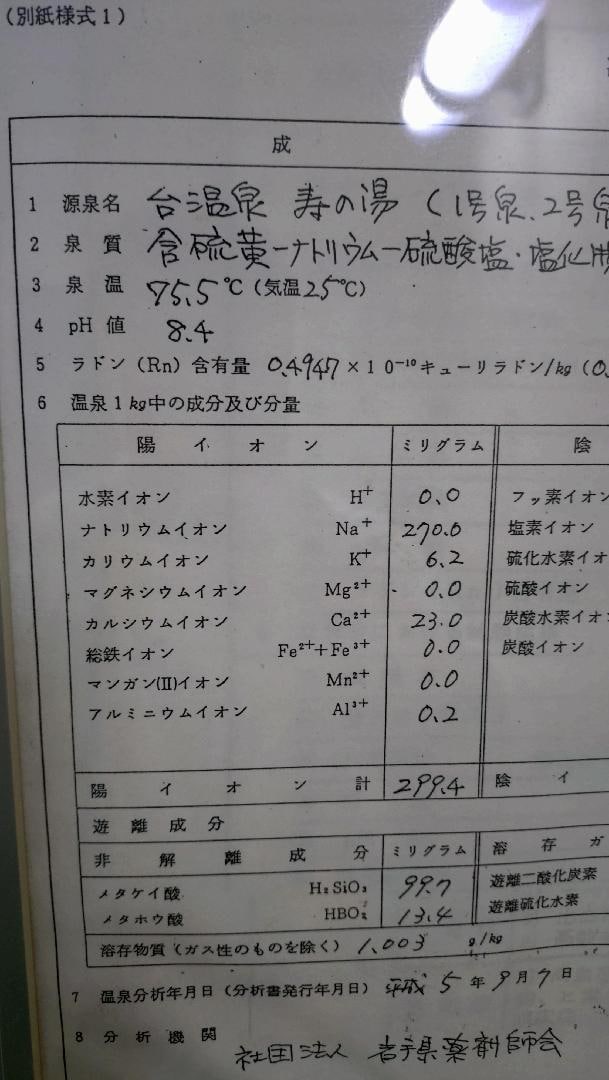 (別紙様式1)
成
1 源泉名 台温泉 寿の湯 (1号泉、2号泉
2 泉質 含硫黄ーナトリウムー硫酸塩・塩化物
3 泉温 75.5℃(気温25℃)
4 pH値 8.4
5 ラドン(Rn)含有量 0.4947×10⁻¹⁰キューリラドン/kg(0.
6 温泉1kg中の成分及び分量
陽イオン ミリグラム 陰
水素イオン H⁺ 0.0 フッ素イオン
ナトリウムイオン Na⁺ 270.0 塩素イオン
カリウムイオン K⁺ 6.2 硫化水素イオ
マグネシウムイオン Mg²⁺ 0.0 硫酸イオン
カルシウムイオン Ca²⁺ 23.0 炭酸水素イオ
総鉄イオン Fe²⁺+Fe³⁺ 0.0 炭酸イオン
マンガン(II)イオン Mn²⁺ 0.0
アルミニウムイオン Al³⁺ 0.2
陽イオン計 299.4 陰イ
遊離成分
非解離成分 ミリグラム 溶存ガ
メタケイ酸 H₂SiO₃ 99.7 遊離二酸化炭素
メタホウ酸 HBO₂ 13.4 遊離硫化水素
溶存物質(ガス性のものを除く) 1.003 g/kg
7 温泉分析年月日(分析書発行年月日) 平成5年9月7日
8 分析機関
社団法人 岩手県薬剤師会